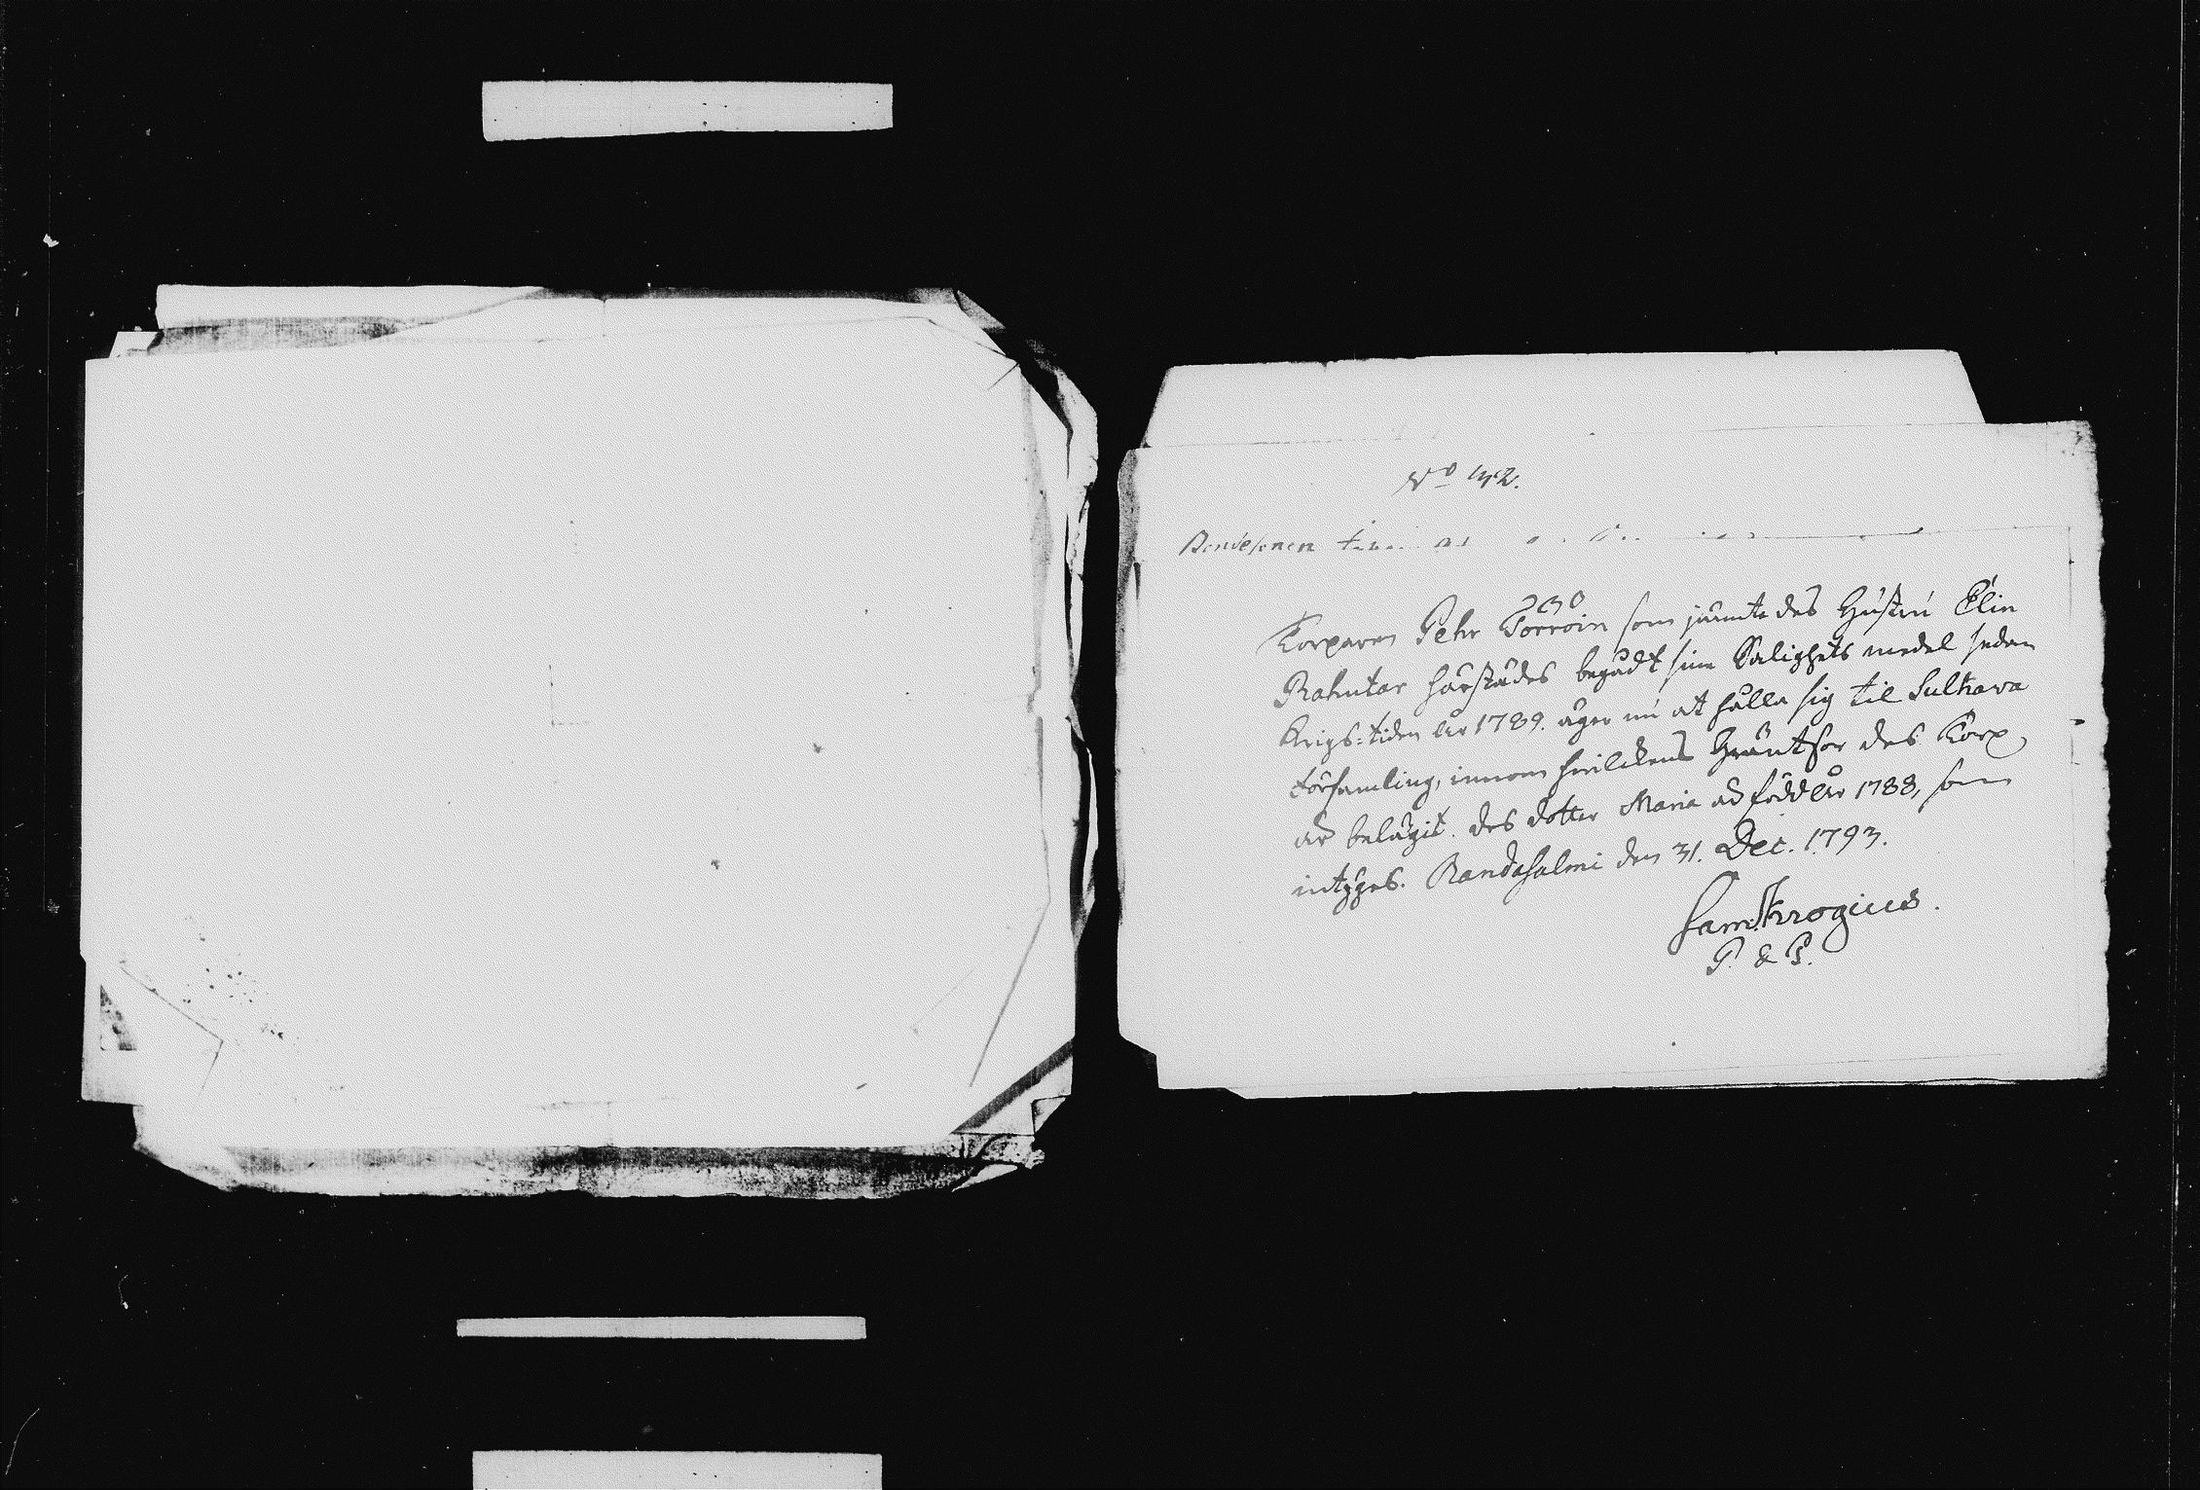 No 142.
Torparen Pehr Torroin som jämte des Hustru Elin
230
Rahutar härstädes begådt sina Salighets medel sedan
Krigs-tiden År 1789. äger nu at hålla sig til Sulkava
församling, innom hvilckens Gräntsor des Torp
är belägit. des dotter Maria är född År 1788, som
intÿgas. Randasalmi den 31. Dec. 1793.
Sam: Krogius.
P. & P.